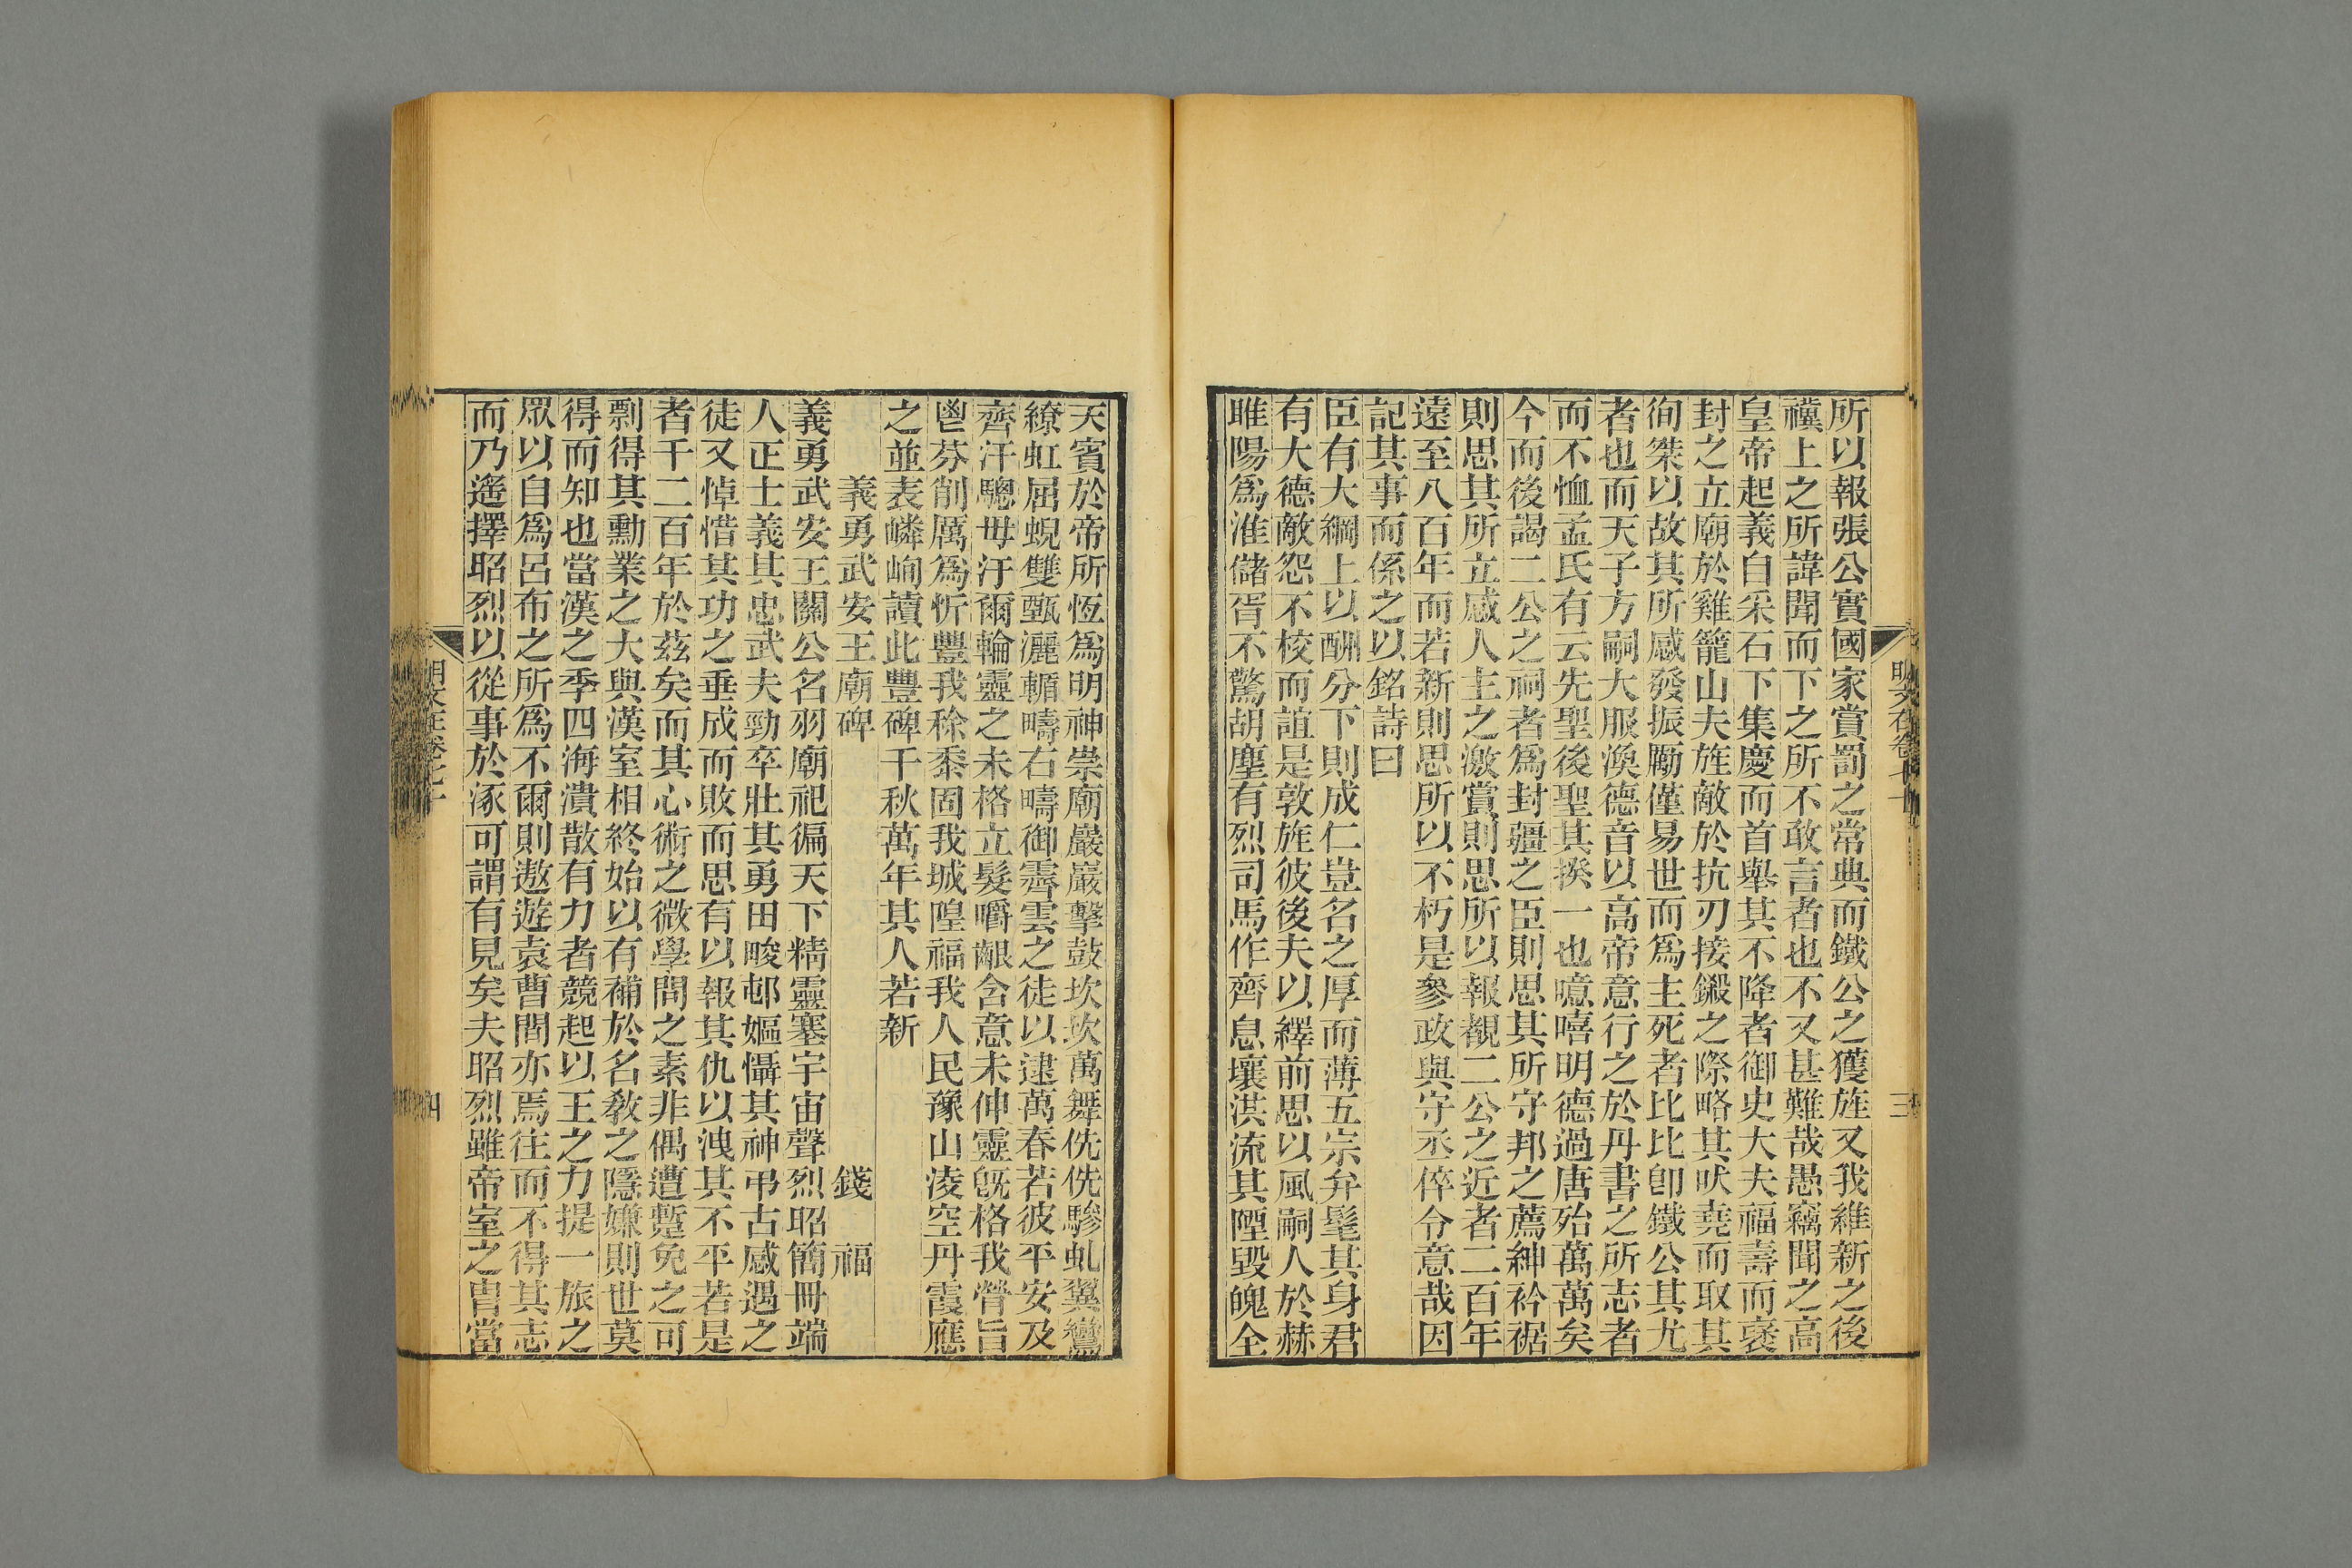 所以報張公實國家賞罰之常典而鐵公之獲旌又我維新之後
禨上之所諱聞而下之所不敢言者也不又甚難哉愚竊聞之高
皇帝起義自采石下集慶而首舉其不降者御史大夫福壽而褒
封之立廟於雞籠山夫旌敵於抗刃接鍛之際略其吠堯而取其
徇桀以故其所感發振勵僅易世而爲主死者比比卽鐵公其尤
者也而天子方嗣大服渙德音以高帝意行之於丹書之所志者
而不恤孟氏有云先聖後聖其揆一也噫嘻明德過唐殆萬萬矣
今而後謁二公之祠者爲封疆之臣則思其所守邦之薦紳衿裾
則思其所立感人主之激賞則思所以報覩二公之近者二百年
遠至八百年而若新則思所以不朽是參政與守丞倅令意哉因
記其事而係之以銘詩曰
臣有大綱上以酬分下則成仁豈名之厚而薄五宗弁髦其身君
有大德敵怨不校而誼是敦旌彼後夫以繹前思以風嗣人於赫
睢陽爲淮儲胥不驚胡塵有烈司馬作齊息壤洪流其陻毀魄全
明文在卷七十
三
天賓於帝所恆爲明神崇廟巖巖擊鼓坎坎萬舞侁侁驂虬翼鸞
繚虹屈蜺雙甄灑輴疇右疇御霽雲之徒以逮萬春若彼平安及
齊汗驄毋汙爾輪靈之未格立髮嚼齦含意未伸靈旣格我膋旨
鬯芬削厲爲忻豐我稌黍固我城隍福我人民豫山凌空丹霞應
之並表嶙峋讀此豐碑千秋萬年其人若新
義勇武安王廟碑 錢福
義勇武安王關公名羽廟祀徧天下精靈塞宇宙聲烈昭簡冊端
人正士義其忠武夫勁卒壯其勇田畯邨嫗懾其神弔古感遇之
徒又悼惜其功之垂成而敗而思有以報其仇以洩其不平若是
者千二百年於茲矣而其心術之微學問之素非偶遭蹔免之可
剽得其勳業之大與漢室相終始以有補於名敎之隱嫌則世莫
得而知也當漢之季四海潰散有力者競起以王之力提一旅之
眾以自爲呂布之所爲不爾則遨遊袁曹閒亦焉往而不得其志
而乃遴擇昭烈以從事於涿可謂有見矣夫昭烈雖帝室之胄當
明文在卷七十
四